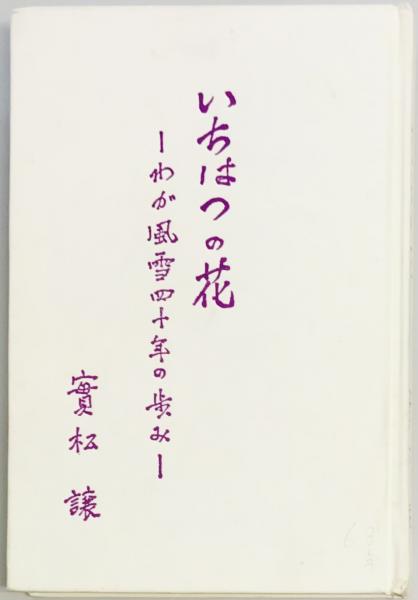 いちはつの花
ーわが風雪四十年の歩みー
實松 譲